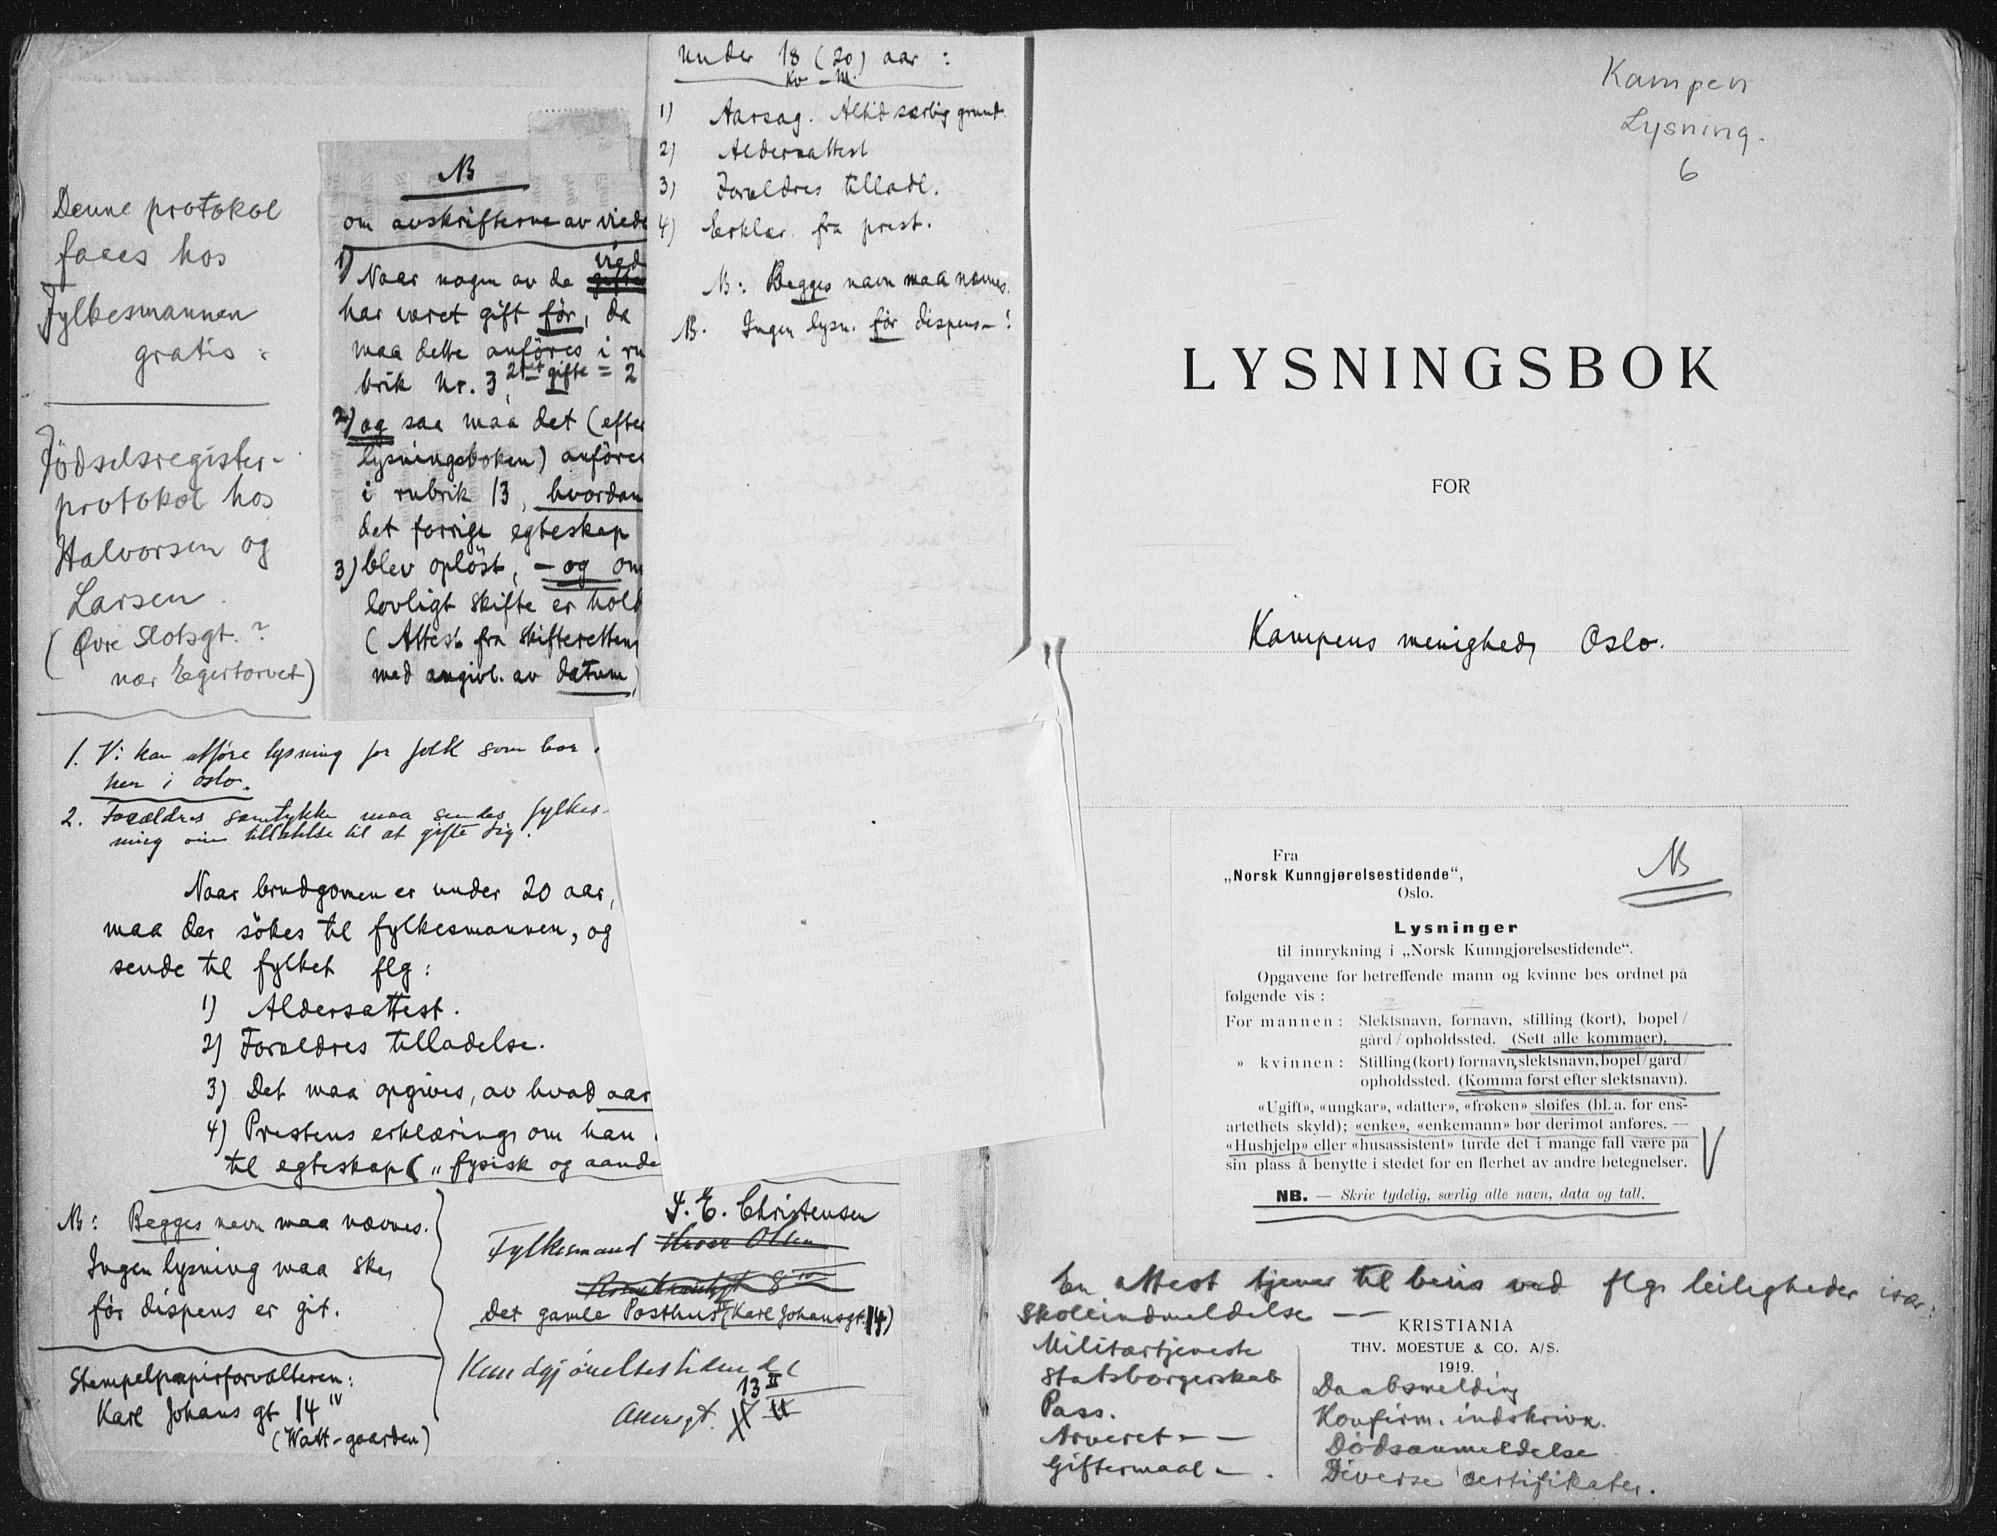 Denne protokol
faaes hos
Fylkesmannen
gratis.
Fødselsregister-
protokol hos
Halvorsen og
Larsen.
(Øvre Slotsgt.?
nær Egertorvet)
NB
om avskrifterne av viede
1) Naar nogen av de vied
har været gift før, da
maa dette anføres i ru
brik nr. 3, 2det gifte = 2
2) og saa maa det (efter
lysningsboken) anføres
i rubrik 13, hvordan
det forrige egteskap
3) blev opløst, – og om
lovligt skifte er hold
(Attest fra skifteretten
med angivl. av datum)
under 18 (20) aar :
kv – M.
1) Aarsag. Altid særlig grund.
2) Aldersattest
3) Forældres tilladl.
4) Erklær. fra prest.
NB: Begges navn maa nævnes.
NB. Ingen lysn. før dispens–!
1. Vi kan utføre lysning for folk som bor
her i Oslo.
2. Forældres samtykke maa sendes fylkes-
om tillatelse til at gifte sig.
Naar brudgomen er under 20 aar,
maa der søkes til fylkesmannen, og
sende til fylket flg:
1) Aldersattest.
2) Forældres tilladelse.
3) Det maa opgives, av hvad aar
4) Prestens erklæring om han
til egteskap („fysisk og aande
NB: Begges navn maa nævnes.
Ingen lysning maa ske,
før dispens er git.
Stempelpapirforvalteren:
Karl Johans gt 14 IV
(Watt-gaarden)
F. E. Christensen
Fylkesmand Hroar Olsen
Det gamle Posthus II (Karl Johansgt. 14)
Kundgjørelsestidende
13 II
Akersgt.
Kampen
Lysning.
6
LYSNINGSBOK
FOR
Kampens menighed, Oslo.
NB
Fra
„Norsk Kunngjørelsestidende“,
Oslo.
Lysninger
til innrykning i „Norsk Kunngjørelsestidende“.
Opgavene for betreffende mann og kvinne bes ordnet på
følgende vis :
For mannen: Slektsnavn, fornavn, stilling (kort), bopel /
gård / opholdssted. (Sett alle kommaer).
» kvinnen: Stilling (kort) fornavn, slektsnavn, bopel / gård /
opholdssted. (Komma først efter slektsnavn).
«Ugift», «ungkar», «datter», «frøken» sløifes (bl. a. for ens-
artethets skyld); «enke», «enkemann» bør derimot anføres. —
«Hushjelp» eller «husassistent» turde det i mange fall være på
sin plass å benytte i stedet for en flerhet av andre betegnelser.
NB. — Skriv tydelig, særlig alle navn, data og tall.
En attest tjener til bevis ved flg. leiligheder især:
Skoleindmeldelse –
KRISTIANIA
THV. MOESTUE & CO. A/S.
1919.
Militærtjeneste
Statsborgerskab
Pass.
Arveret – –
Giftermaal – .
Daabsmelding
Konfirm. indskrivn.
Dødsanmeldelse
Diverse certifikater.